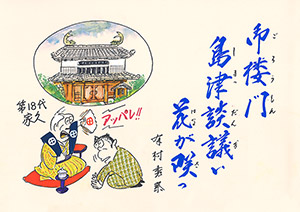 御楼門
ごろうもん
島津談議い
しまづだんぎ
花が咲っ
はなさ
アッパレ!!
第18代
家久